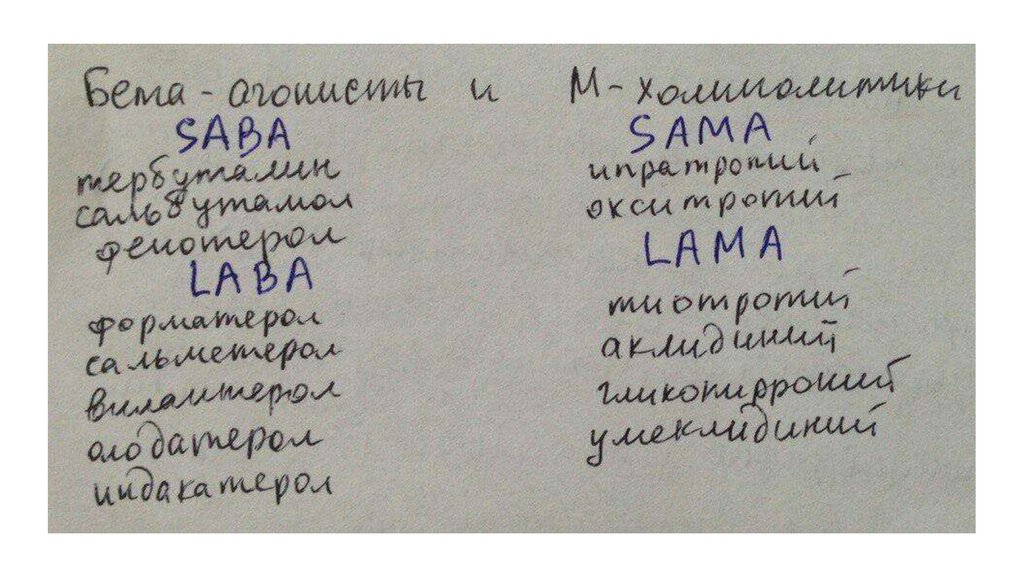 Бета-агонисты и М-холинолитики
SABA
тербуталин
сальбутамол
фенотерол
LABA
форматерол
сальметерол
вилантерол
олодатерол
индакатерол
SAMA
ипратропий
окситропий
LAMA
тиотропий
аклидиний
гликопирроний
умеклидиний